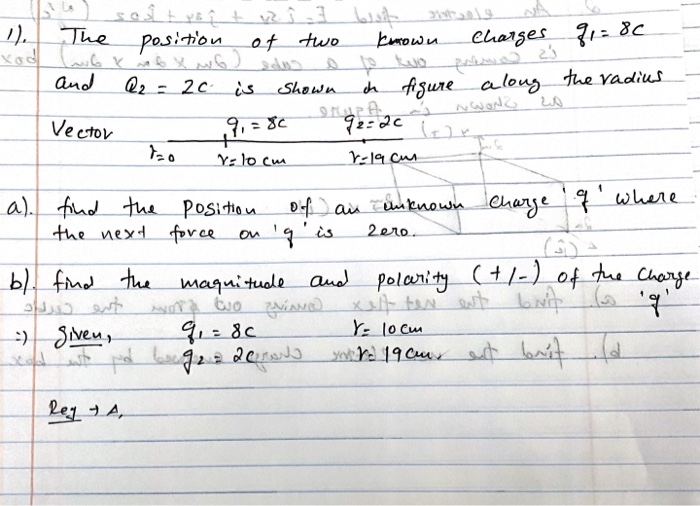 1). The position of two known charges q1 = 8C
and Q2 = 2C. is shown in figure along the radius
Vector
q1 = 8C q2 = 2C
r=0 r=10 cm r=19 cm
a). find the position of an unknown charge 'q' where
the next force on 'q' is zero.
b). find the magnitude and polarity (+/-) of the charge
'q'
=) Given, q1 = 8C r= 10cm
q2 = 2C r= 19cm.
Req → A,